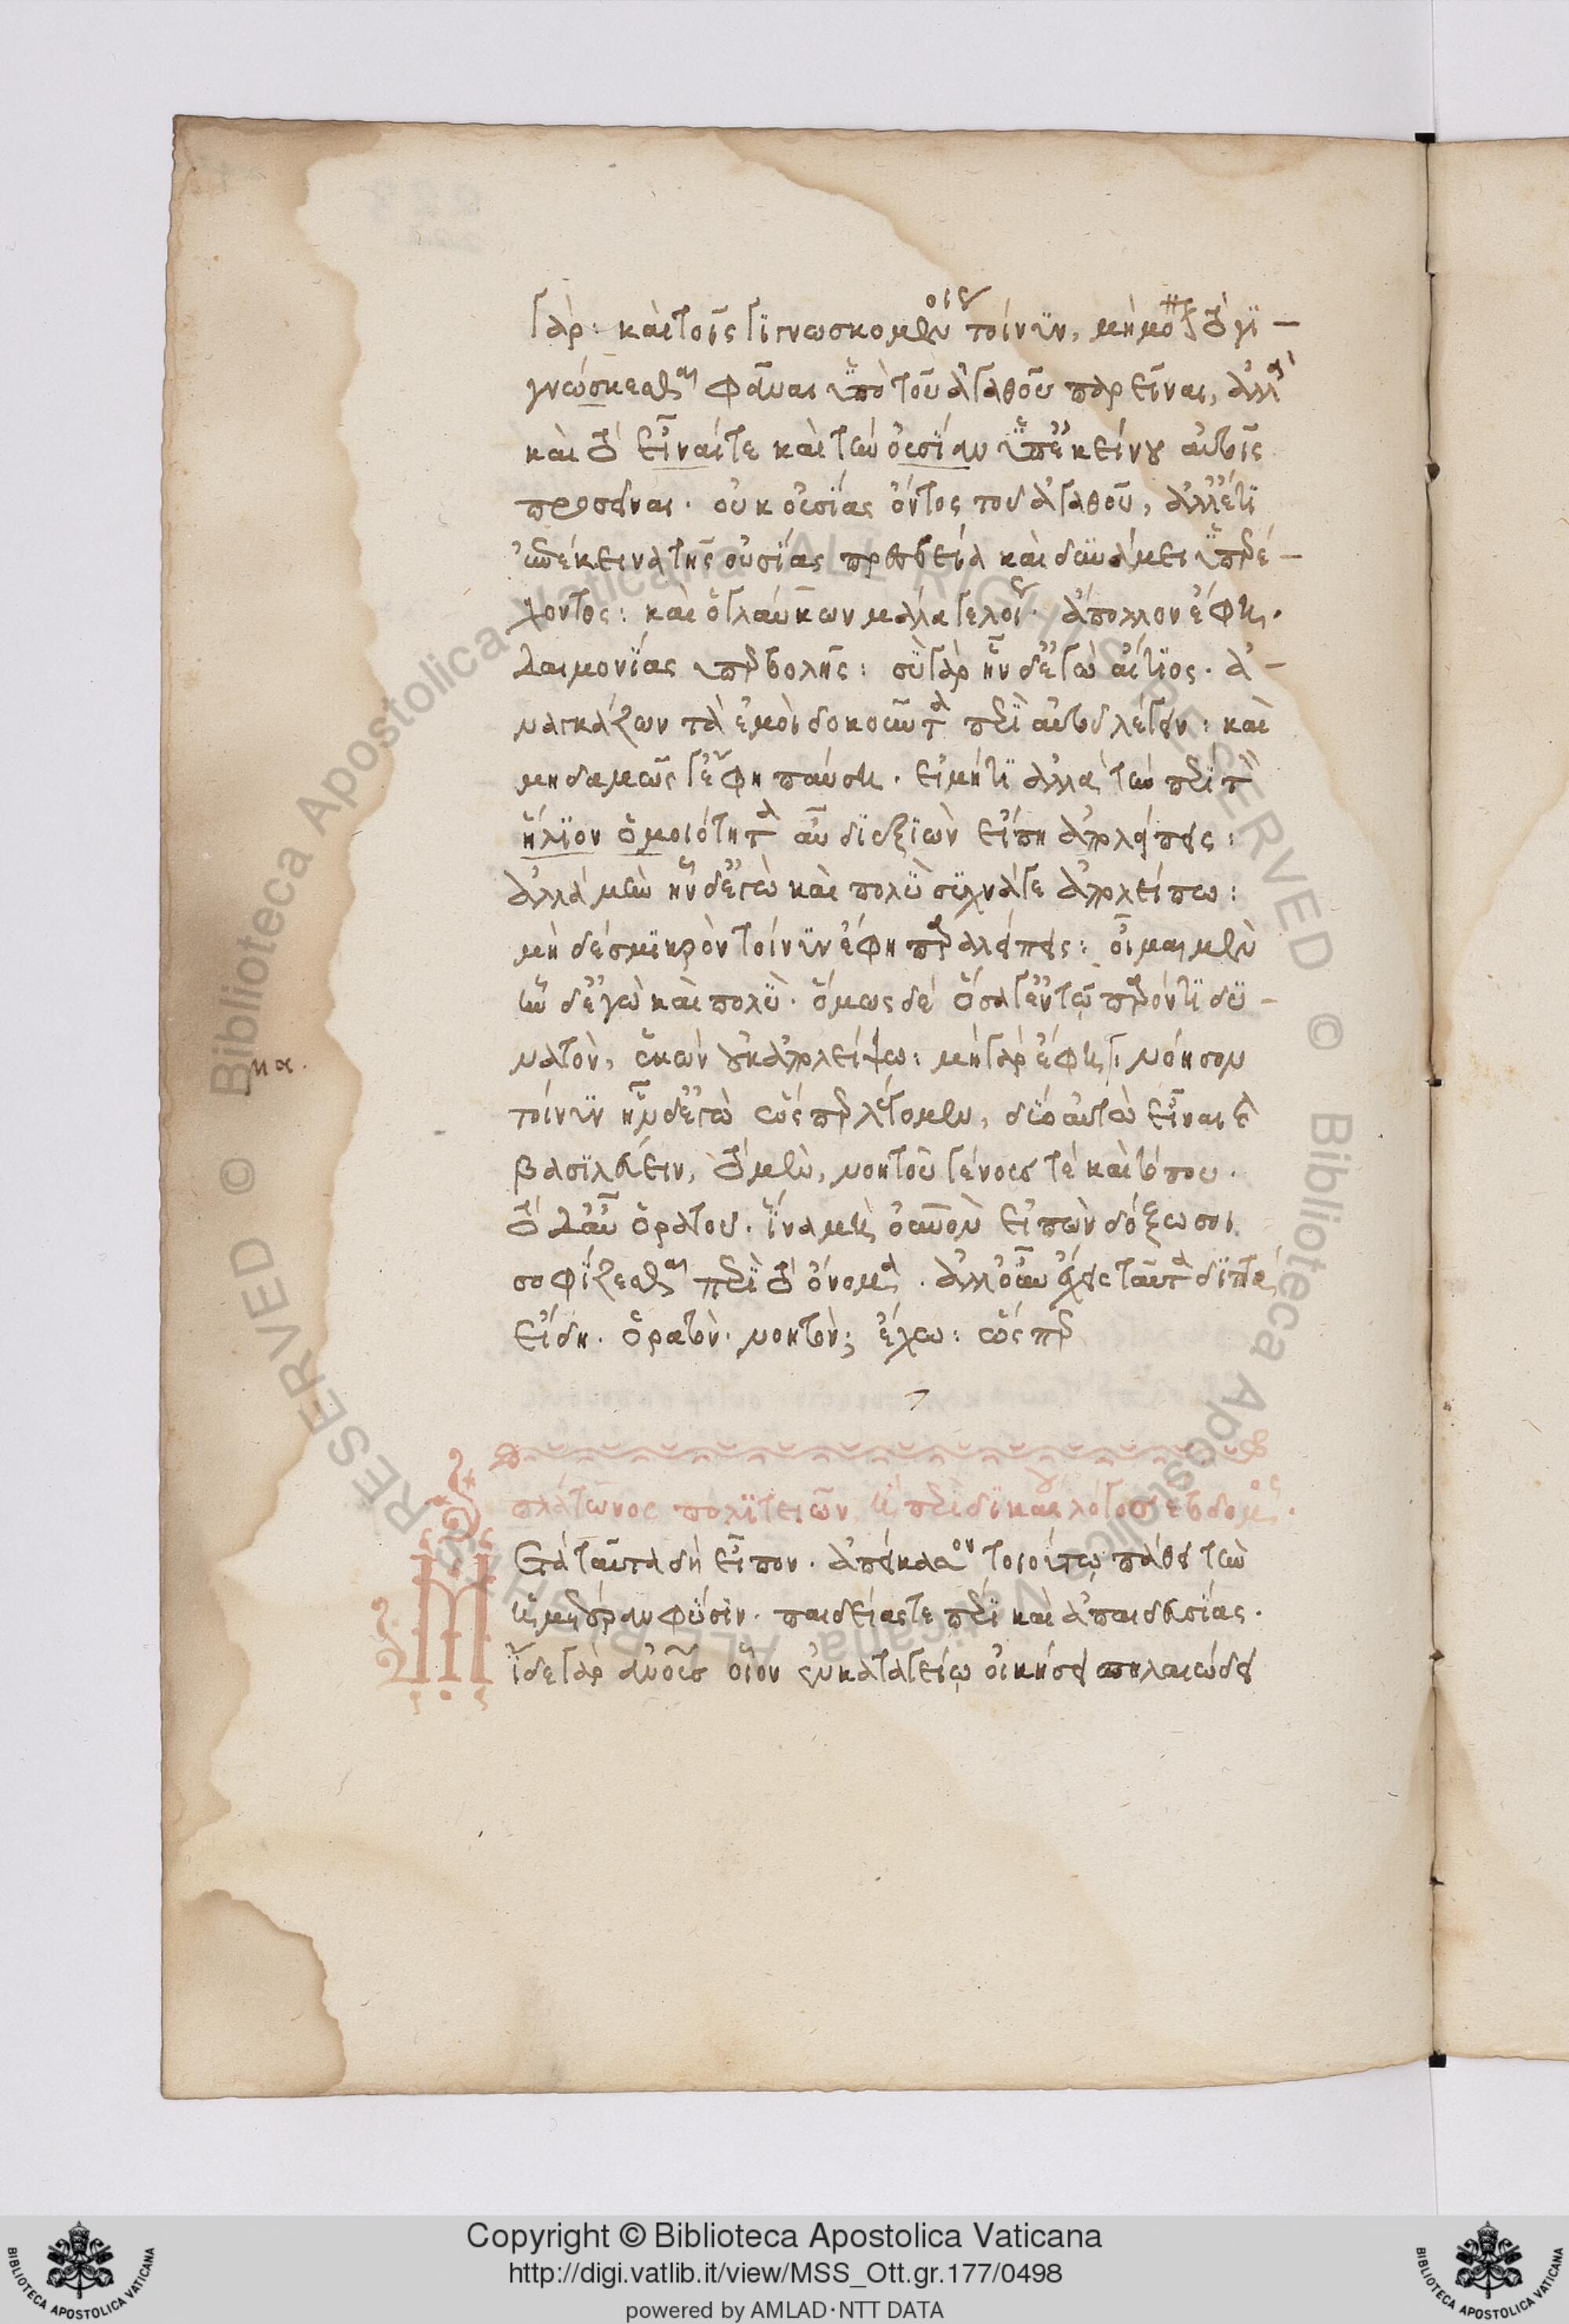 γὰρ: καὶ τοῖς γιγνωσκομένοις τοίνυν, μὴ μόνον τὸ γι-
γνώσκεσθαι φάναι ὑπὸ τοῦ ἀγαθοῦ παρεῖναι, ἀλλὰ
καὶ τὸ εἶναί τε καὶ τὴν οὐσίαν ὑπ' ἐκείνου αὐτοῖς
προσεῖναι. οὐκ οὐσίας ὄντος τοῦ ἀγαθοῦ, ἀλλ' ἔτι
ἐπέκεινα τῆς οὐσίας πρεσβείᾳ καὶ δυνάμει ὑπερέ-
χοντος: καὶ ὁ γλαύκων μάλα γελοίως. ἄπολλον ἔφη.
δαιμονίας ὑπερβολῆς: σὺ γὰρ ἦν δ' ἐγὼ αἴτιος. ἀ-
ναγκάζων τὰ ἐμοὶ δοκοῦντα περὶ αὐτοῦ λέγειν: καὶ
μηδαμῶς γ' ἔφη παύσῃ. εἰ μή τι ἀλλὰ τὴν περὶ τὸν
ἥλιον ὁμοιότητα αὖ διεξιὼν εἴ πῃ ἀπολείπεις:
ἀλλὰ μὴν ἦν δ' ἐγὼ καὶ πολὺ συχνά γε ἀπολείπω:
μηδὲ σμικρὸν τοίνυν ἔφη παραλείπεις: οἶμαι μὲν
ἦν δ' ἐγὼ καὶ πολὺ. ὅμως δὲ ὅσα γ' ἐν τῷ παρόντι δυ-
νατὸν, ἑκὼν οὐκ ἀπολείψω: μὴ γὰρ ἔφη: νόησον
να.
τοίνυν ἦν δ' ἐγὼ ὥσπερ λέγομεν, δύο αὐτὼ εἶναι καὶ
βασιλεύειν, τὸ μὲν, νοητοῦ γένους τὲ καὶ τόπου.
τὸ δ' αὖ ὁρατοῦ. ἵνα μὴ οὐρανὸν εἰπὼν δόξω σοι
σοφίζεσθαι περὶ τὸ ὄνομα. ἀλλ' οὖν ἔχεις ταῦτα διττὰ
εἴδη. ὁρατὸν. νοητὸν; ἔχω: ὥσπερ
πλάτωνος πολιτειῶν ἢ περὶ δικαίου λόγος ἕβδομος.
Μετὰ ταῦτα δὴ εἶπον. ἀπείκασον τοιούτῳ πάθει τὴν
ἡμετέραν φύσιν. παιδείας τε πέρι καὶ ἀπαιδευσίας.
ἴδε γὰρ ἀνθρώπους οἷον ἐν καταγείῳ οἰκήσει σπηλαιώδει
Copyright © Biblioteca Apostolica Vaticana
http://digi.vatlib.it/view/MSS_Ott.gr.177/0498
powered by AMLAD·NTT DATA